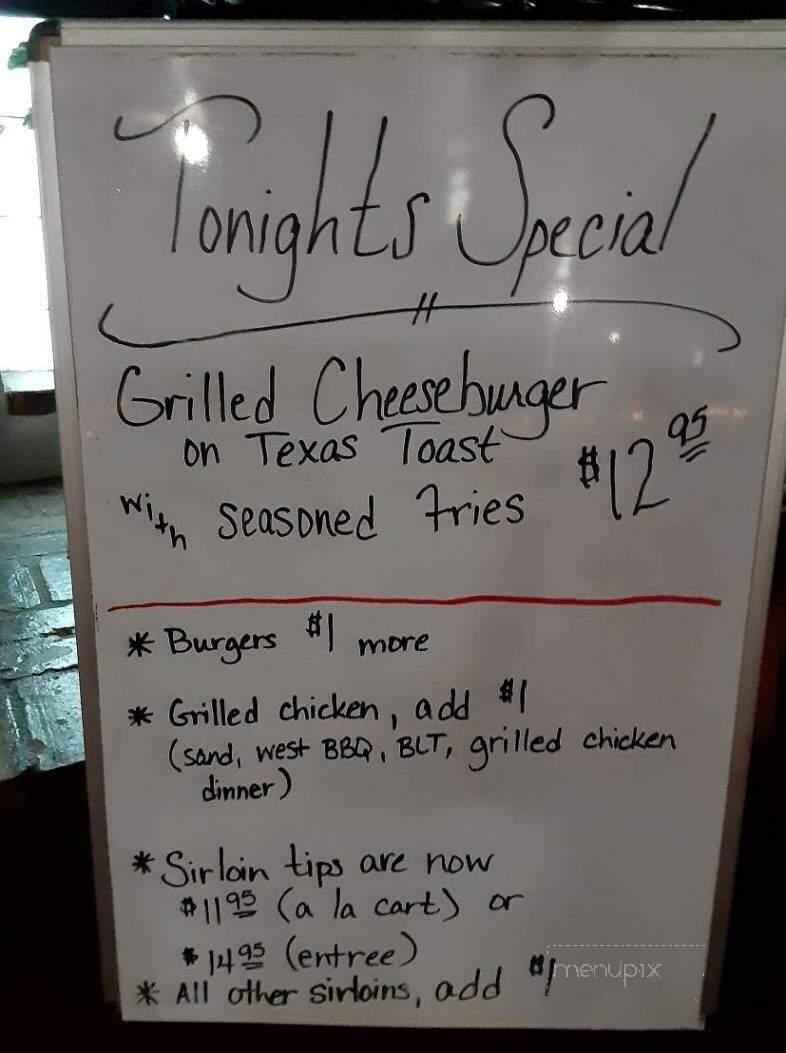 Tonights Special
Grilled Cheeseburger
on Texas Toast
with seasoned fries $12.95
* Burgers $1 more
* Grilled chicken, add $1
(sand, west BBQ, BLT, grilled chicken
dinner)
* Sirloin tips are now
$11.95 (a la cart) or
$14.95 (entree)
* All other sirloins, add $1
menupix